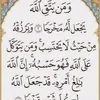 وَمَن يَتَّقِ ٱللَّهَ
يَجْعَل لَّهُۥ مَخْرَجًا ٢ وَيَرْزُقْهُ
مِنْ حَيْثُ لَا يَحْتَسِبُ وَمَن يَتَوَكَّلْ
عَلَى ٱللَّهِ فَهُوَ حَسْبُهُۥٓ إِنَّ ٱللَّهَ
بَٰلِغُ أَمْرِهِۦ قَدْ جَعَلَ ٱللَّهُ